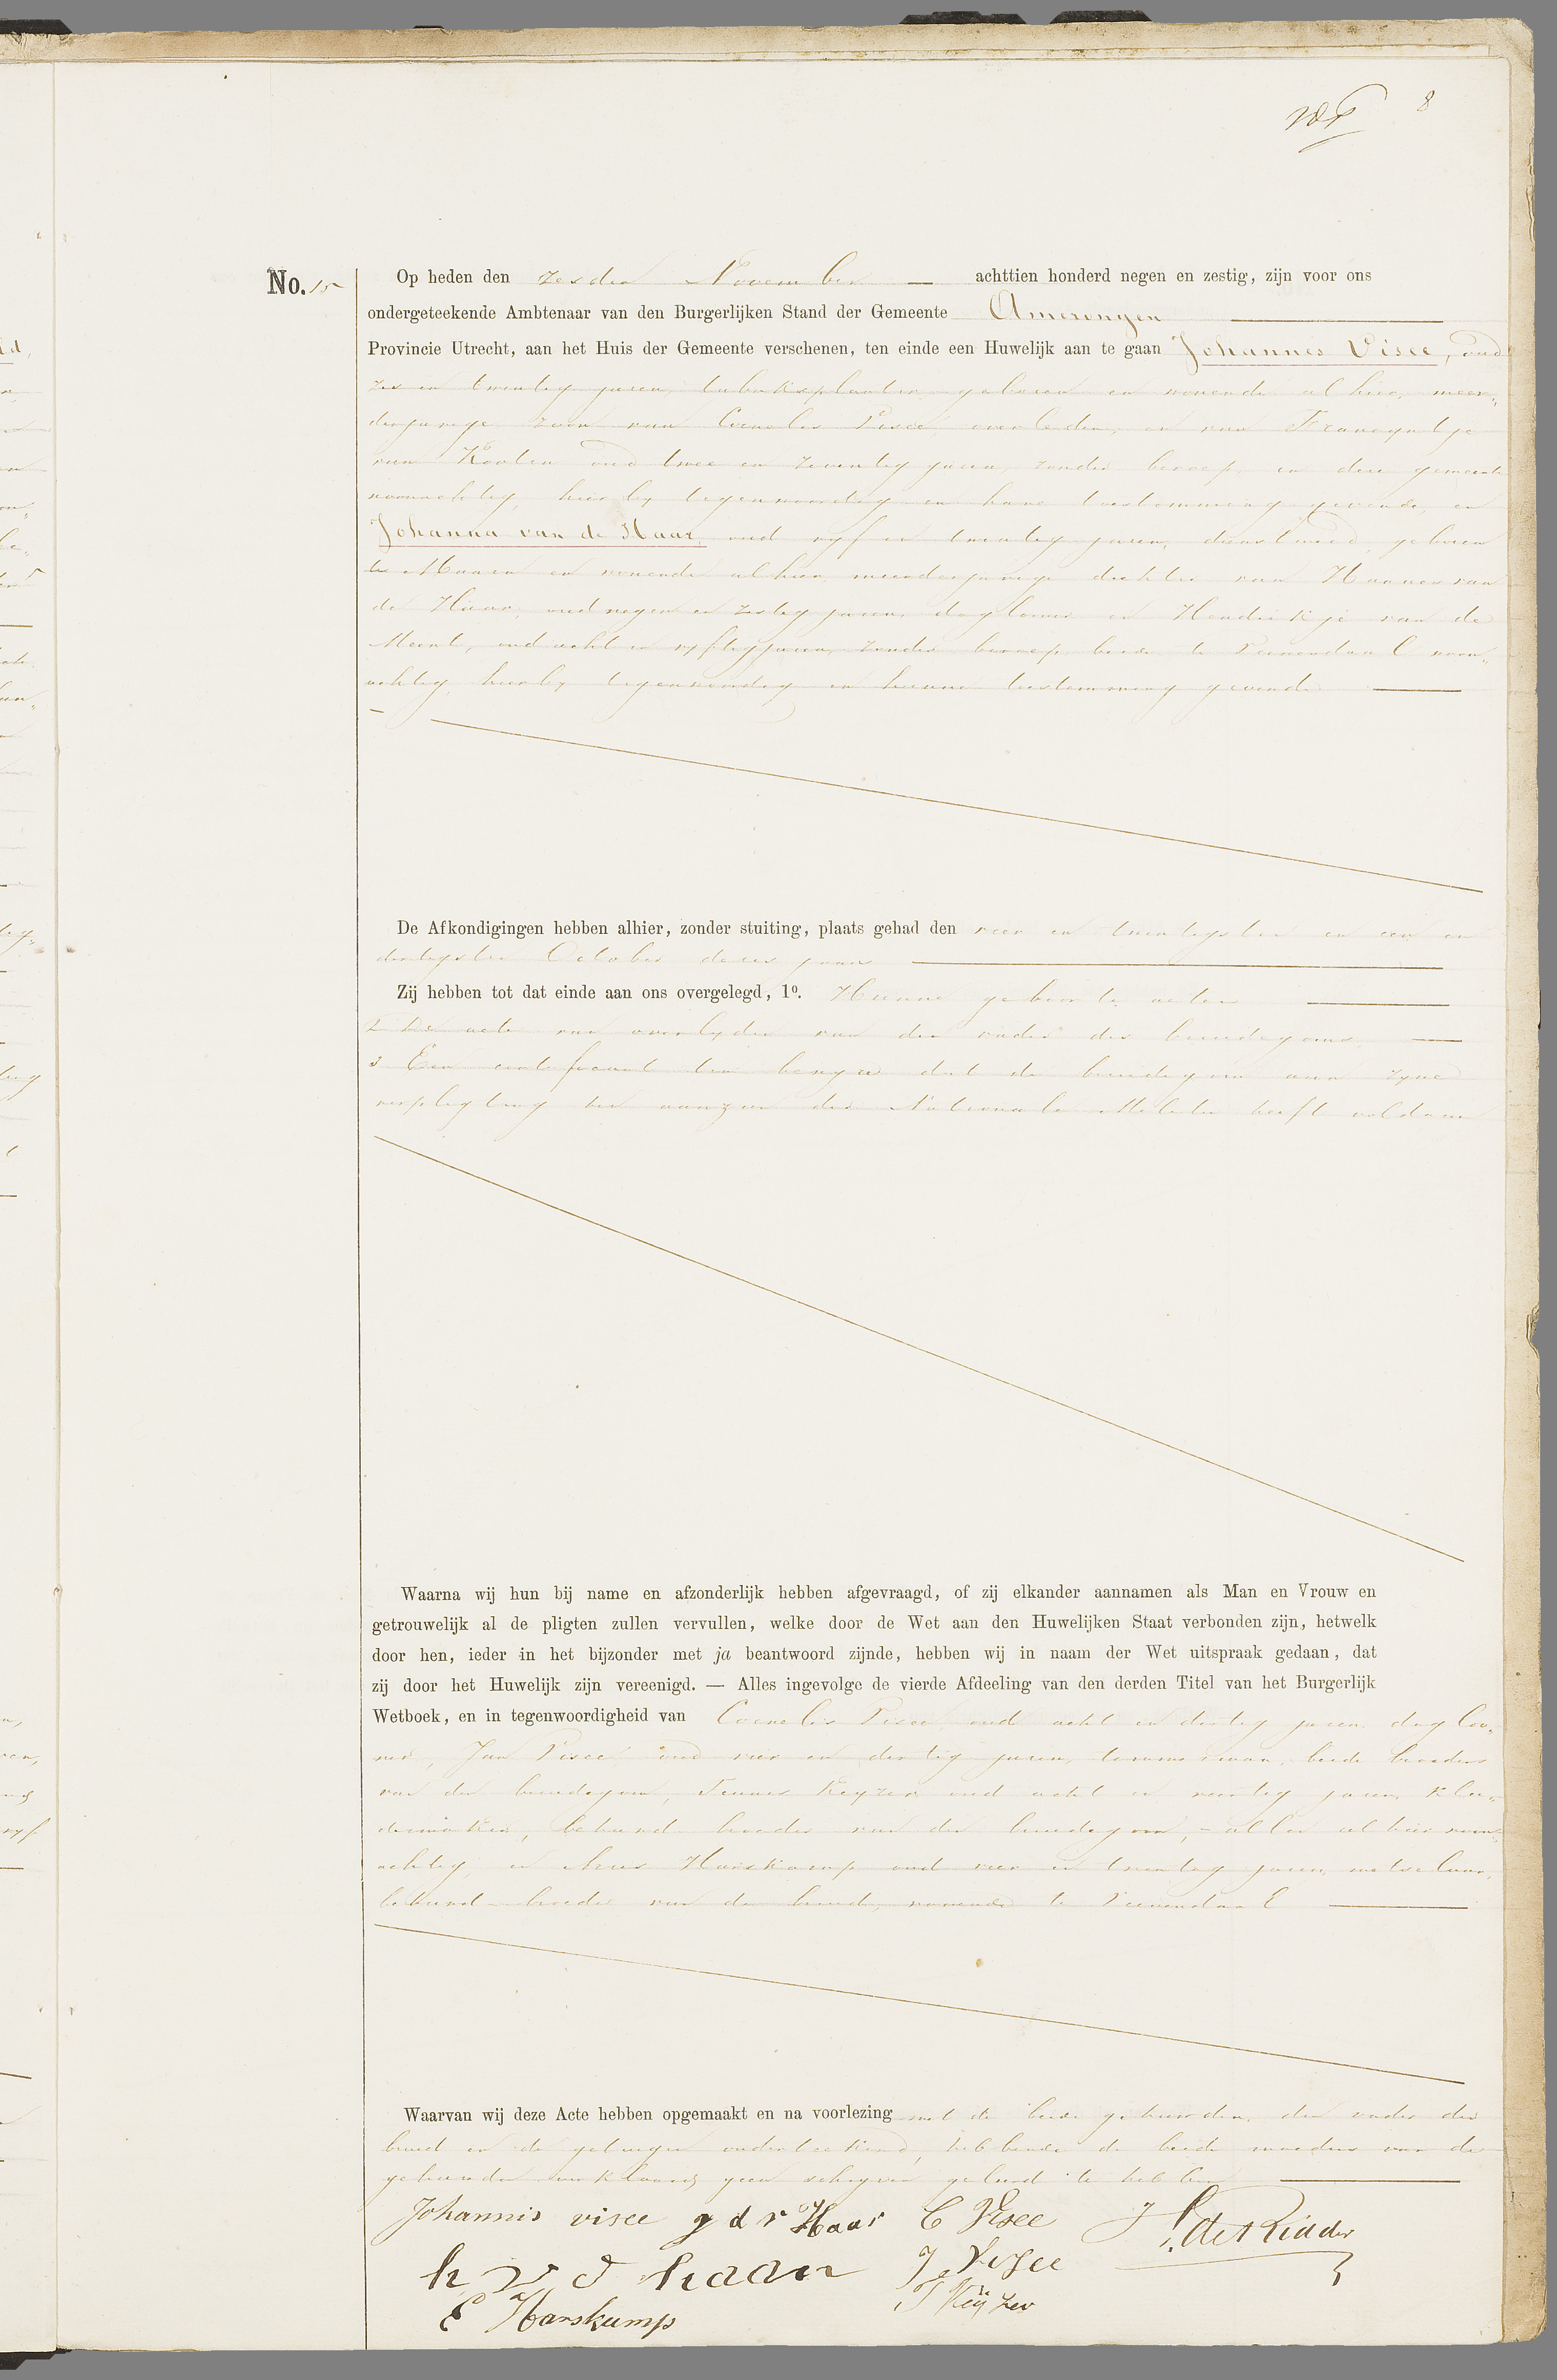 8
No. 15
Op heden den zesden November achttien honderd negen en zestig, zijn voor ons
ondergeteekende Ambtenaar van den Burgerlijken Stand der Gemeente Amerongen
Provincie Utrecht, aan het Huis der Gemeente verschenen, ten einde een Huwelijk aan te gaan Johannes Visee, oud
zes en twintig jaren, tabaksplanter, geboren en wonende alhier, meer„
derjarige zoon van Cornelis Visee, overleden, en van Fransyntje
van Kooten oud twee en zeventig jaren, zonder beroep, in deze gemeente
woonachtig, hierby tegenwoordig en hare toestemming gevende, en
Johanna van de Haar, oud vyf en twintig jaren, dienstmeid, geboren
te Maarn en wonende alhier, meerderjarige dochter van Hannes van
de Haar, oud negen en zestig jaren, daglooner en Hendrikje van de
Meent, oud acht en vyftig jaren, zonder beroep, beide te Veenendaal woon„
achtig, hierby tegenwoordig en hunne toestemming gevende
De Afkondigingen hebben alhier, zonder stuiting, plaats gehad den vier en twintigsten en een en
dertigsten October dezes jaars
Zij hebben tot dat einde aan ons overgelegd, 1º. Hunne geboorte acten
2 De acte van overlyden van den vader des bruidegoms
3 Een certificaat ten bewyze dat de bruidegom aan zyne
verpligting ten aanzien der Nationale Militie heeft voldaan
Waarna wij hun bij name en afzonderlijk hebben afgevraagd, of zij elkander aannamen als Man en Vrouw en
getrouwelijk al de pligten zullen vervullen, welke door de Wet aan den Huwelijken Staat verbonden zijn, hetwelk
door hen, ieder in het bijzonder met ja beantwoord zijnde, hebben wij in naam der Wet uitspraak gedaan, dat
zij door het Huwelijk zijn vereenigd. — Alles ingevolge de vierde Afdeeling van den derden Titel van het Burgerlijk
Wetboek, en in tegenwoordigheid van Cornelis Visee, oud acht en dertig jaren, dagloo„
ner, Jan Visee oud vier en dertig jaren, timmerman, beide broeders
van den bruidegom, Teunis Keyzer oud acht en veertig jaren, klee„
dermaker, behuwd broeder van den bruidegom, - allen alhier woon„
achtig, en Harskamp oud vier en twintig jaren, metselaar,
behuwd broeder van de bruid, wonende te Veenendaal
Waarvan wij deze Acte hebben opgemaakt en na voorlezing met de beide gehuwden, den vader der
bruid en de getuigen onderteekend, hebbende de beide moeders van de
gehuwden verklaard geen schryven geleerd te hebben
Johannis visee g d v Haar C Visee J. de Ridder
h v d haar J. Visee
E Harskamp T Keÿzer